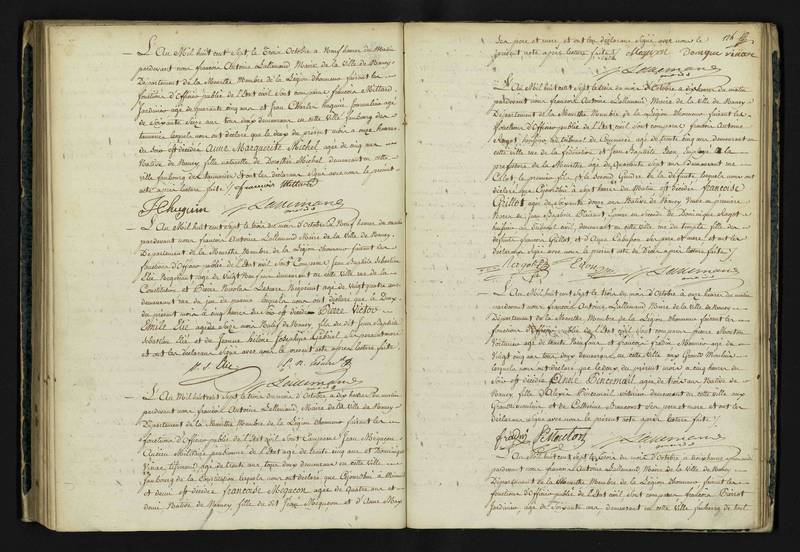 L'An Mil huit cent Sept, le Trois Octobre a Neuf heures du Matin
pardevant nous francois Antoine Lallemand Maire de la Ville de Nancy,
Département de la Meurthe Membre de la Légion d'honneur faisant les
fonctions d'Officier public de l'Etat civil sont comparus francois
Jardinier agé de quarante cinq ans et Jean Charles huguin
de Soixante ans tous deux demeurant en cette Ville faubourg des
lesquels nous ont déclaré que le deux du présent mois a onze heures
du Soir est décédée Anne Marguerite Michel agée de cinq ans
Native de Nancy fille naturelle de Dorothée Michel demeurant en cette
ville faubourg et ont les déclarans Signé avec nous le present
acte après lecture faite /. francois
JC huguin Lallemand
L'An Mil huit cent Sept le trois du mois d'Octobre a Neuf heures du matin
pardevant nous francois Antoine Lallemand Maire de la Ville de Nancy,
Département de la Meurthe Membre de la Légion d'honneur faisant les
fonctions d'Officier public de l'Etat civil sont Comparus Jean Baptiste Sébastien
Elié Négociant agé de Vingt Neuf ans demeurant en cette Ville rue de la
Constitution et Pierre Nicolas Négociant agé de Vingt quatre ans
demeurant rue du lesquels nous ont déclaré que le Deux
du présent mois a cinq heures du est décédé Pierre Victor
Emile Elié agé de onze mois Natif de Nancy fils de dit Jean Baptiste
Sébastien Elié et de Jeanne hélène Josephine Gabriel Ses pere et mere
et ont les déclarans Signé avec nous le présent acte après lecture faite /.
Lallemand
L'An Mil huit cent Sept le trois du mois d'Octobre a dix heures du matin
pardevant nous francois Antoine Lallemand Maire de la Ville de Nancy
Département de la Meurthe Membre de la Légion d'honneur faisant les
fonctions d'Officier public de l'Etat civil sont Comparus Jean
Ancien Militaire pensionné de l'Etat agé de trente cinq ans et Dominique
Vinar Tisserant agé de trente ans tous deux demeurant en cette Ville
faubourg de la Constitution lesquels nous ont déclaré que Cejourd'hui a
et demi est décédée francoise agée de quatre ans et
demi Native de Nancy fille du dit Jean et d'Anne
176
Ses pere et mere et ont les déclarans Signé avec nous le
present acte après lecture faite /. Domque vinar
Lallemand
L'An Mil huit cent Sept le trois du mois d'Octobre a dix heures du matin
pardevant nous francois Antoine Lallemand Maire de la Ville de Nancy
Département de la Meurthe Membre de la Légion d'honneur faisant les
fonctions d'Officier public de l'Etat civil sont comparus francois Antoine
au tribunal de Commerce agé de trente cinq ans demeurant en
cette ville rue de la et Jean Baptiste employé a la
préfecture de la Meurthe agé de quarante Sept ans demeurant rue
le premier fils et le second Gendre de la défunte lesquels nous ont
déclaré que Cejourd'hui a Sept heures du Matin est décédée francoise
Gillot agée de Soixante ans Native de Nancy Veuve en premiere
Noces de Jean Baptiste Epouse en seconde de Dominique
huissier au tribunal civil, demeurant en cette Ville rue du temple fille des
défunts francois Gillot et d'Anne Ses pere et mere et ont les
déclarans Signé avec nous le présent acte de Décès après lecture faite /.
Lallemand
L'An Mil huit cent Sept le trois du mois d'Octobre a onze heures du matin
pardevant nous francois Antoine Lallemand Maire de la Ville de Nancy
Département de la Meurthe Membre de la Légion d'honneur faisant les
fonctions d'Officier public de l'Etat civil sont comparus pierre
Voiturier agé de trente Neuf ans et francois agé de
Vingt cinq ans tous deux demeurans en cette Ville aux Grands Moulins
lesquels nous ont déclaré que le deux du présent mois a cinq heures du
Soir est décédée Anne agée de trois ans Native de
Nancy fille d'Alexis demeurant en cette ville aux
Grands moulins et de Catherine Ses pere et mere et ont les
déclarans Signé avec nous le présent acte après lecture faite /.
Lallemand
L'An Mil huit cent Sept le trois du mois d'Octobre a trois heures après midi
pardevant nous francois Antoine Lallemand Maire de la Ville de Nancy
Département de la Meurthe Membre de la Légion d'honneur faisant les
fonctions d'Officier public de l'Etat civil sont comparus francois
Jardinier agé de Soixante ans demeurant en cette Ville faubourg de